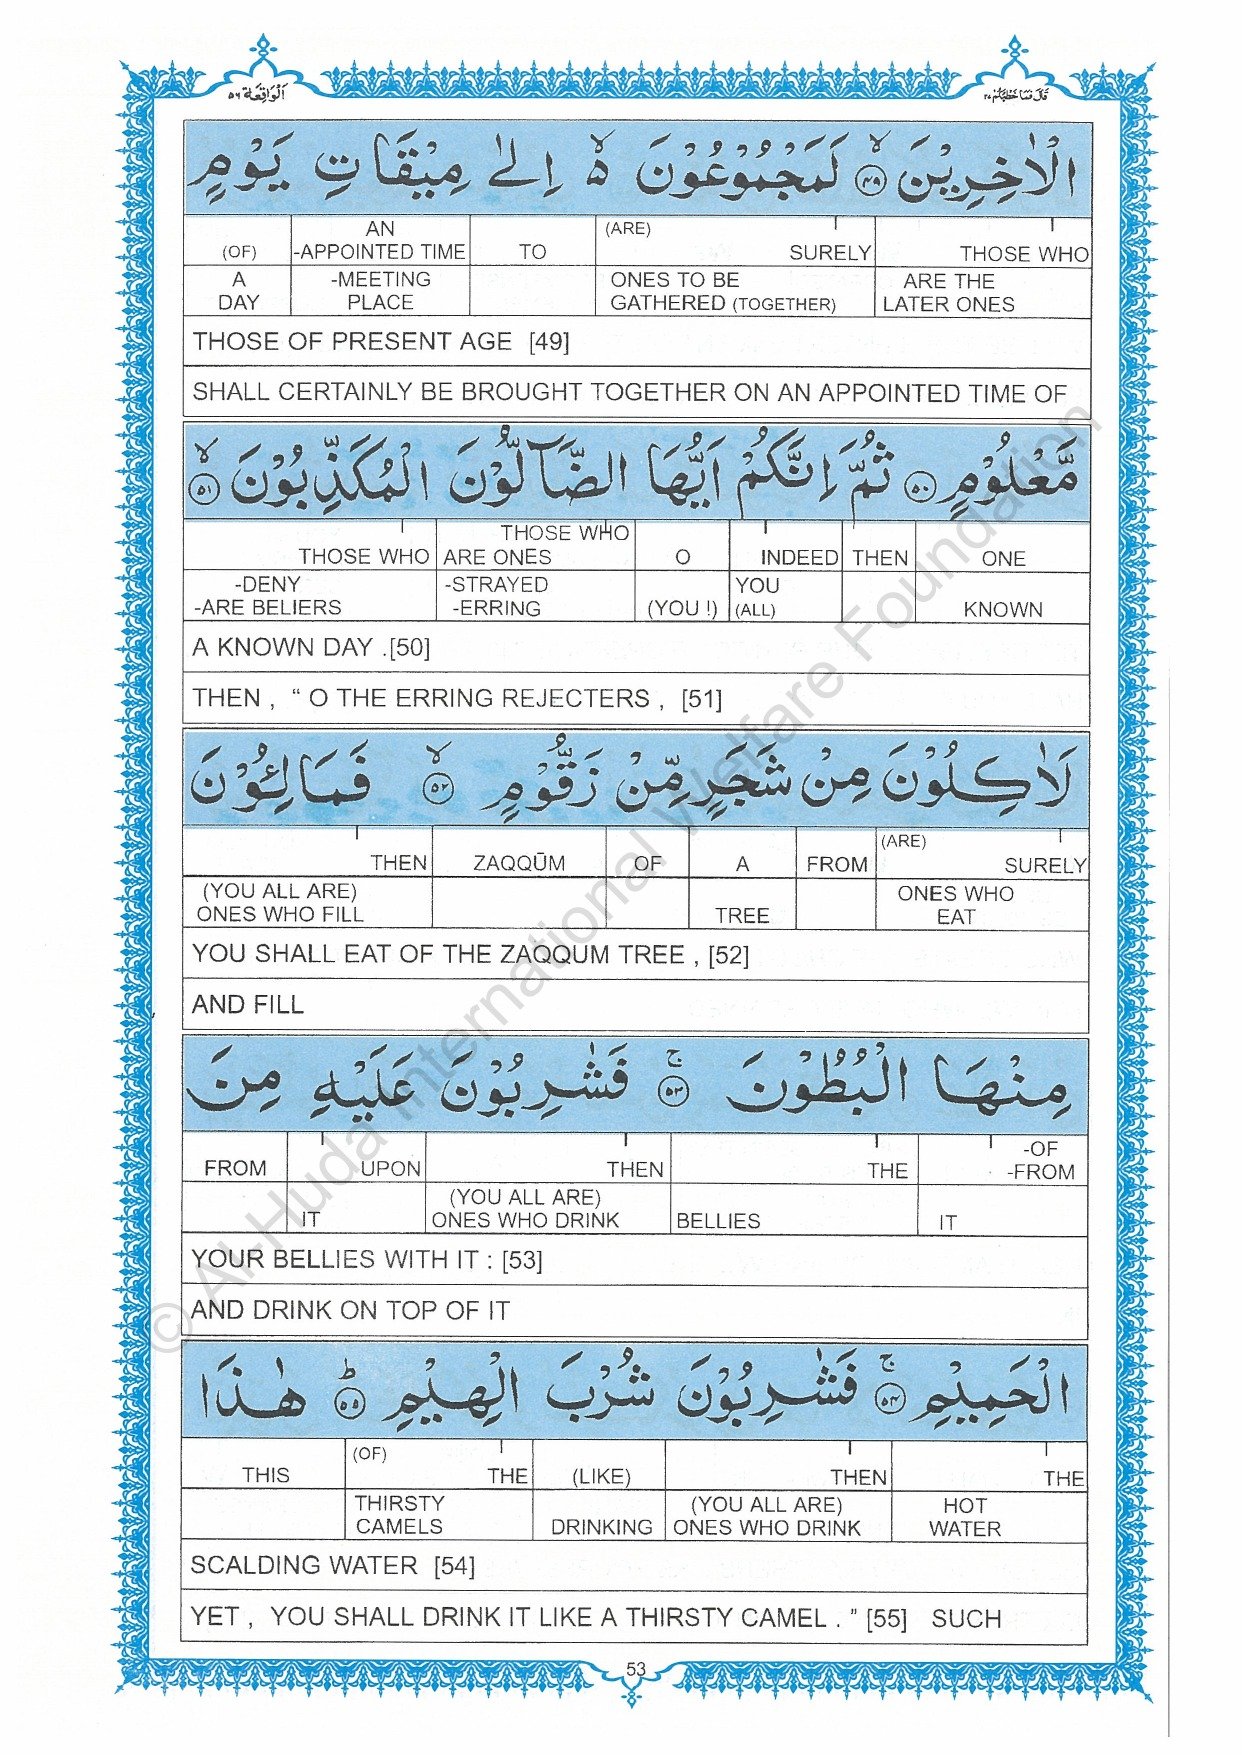 اَلْوَاقِعَة ٥٦
قَالَ فَمَا خَطْبُكُمْ ٢٧
الْاٰخِرِيْنَ ۙ‏﴿۴۹﴾ لَمَجْمُوْعُوْنَ ۙ اِلٰى مِيْقَاتِ يَوْمٍ
(OF) AN -APPOINTED TIME TO (ARE) SURELY THOSE WHO
A DAY -MEETING PLACE ONES TO BE GATHERED (TOGETHER) ARE THE LATER ONES
THOSE OF PRESENT AGE [49]
SHALL CERTAINLY BE BROUGHT TOGETHER ON AN APPOINTED TIME OF
مَّعْلُوْمٍ ﴿۵۰﴾ ثُمَّ اِنَّكُمْ اَيُّهَا الضَّآلُّوْنَ الْمُكَذِّبُوْنَ ۙ‏﴿۵۱﴾
THOSE WHO THOSE WHO ARE ONES O INDEED THEN ONE
-DENY -ARE BELIERS -STRAYED -ERRING (YOU !) YOU (ALL) KNOWN
A KNOWN DAY .[50]
THEN , “ O THE ERRING REJECTERS , [51]
لَاٰكِلُوْنَ مِنْ شَجَرٍ مِّنْ زَقُّوْمٍ ۙ‏﴿۵۲﴾ فَمَالِئُوْنَ
THEN ZAQQŪM OF A FROM (ARE) SURELY
(YOU ALL ARE) ONES WHO FILL TREE ONES WHO EAT
YOU SHALL EAT OF THE ZAQQUM TREE , [52]
AND FILL
مِنْهَا الْبُطُوْنَ ۚ‏﴿۵۳﴾ فَشٰرِبُوْنَ عَلَيْهِ مِنَ
FROM UPON THEN THE -OF -FROM
IT (YOU ALL ARE) ONES WHO DRINK BELLIES IT
YOUR BELLIES WITH IT : [53]
AND DRINK ON TOP OF IT
الْحَمِيْمِ ۚ‏﴿۵۴﴾ فَشٰرِبُوْنَ شُرْبَ الْهِيْمِ ؕ‏﴿۵۵﴾ هٰذَا
THIS (OF) THE (LIKE) THEN THE
THIRSTY CAMELS DRINKING (YOU ALL ARE) ONES WHO DRINK HOT WATER
SCALDING WATER [54]
YET , YOU SHALL DRINK IT LIKE A THIRSTY CAMEL . ” [55] SUCH
53
© Al-Huda International Welfare Foundation